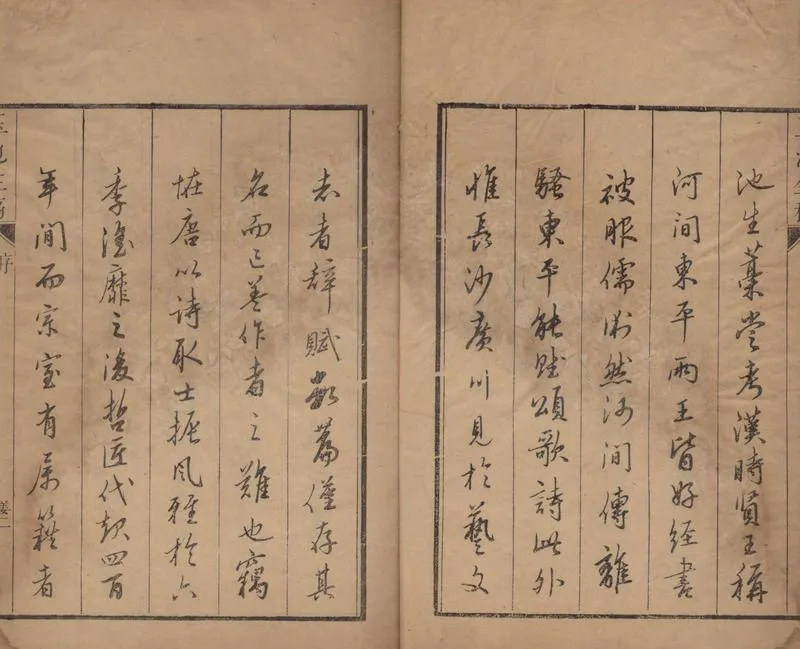 池生藁嘗考漢時賢王稱
河間東平兩王皆好經書
被服儒術然河間傳離
騷東平能賦頌歌詩此外
惟長沙廣川見於藝文
志者辭賦數篇僅存其
名而已蓋作者之難也竊
惟唐以詩取士振風雅於六
季淫靡之後哲匠代起四百
年間而宗室有屬籍者
序